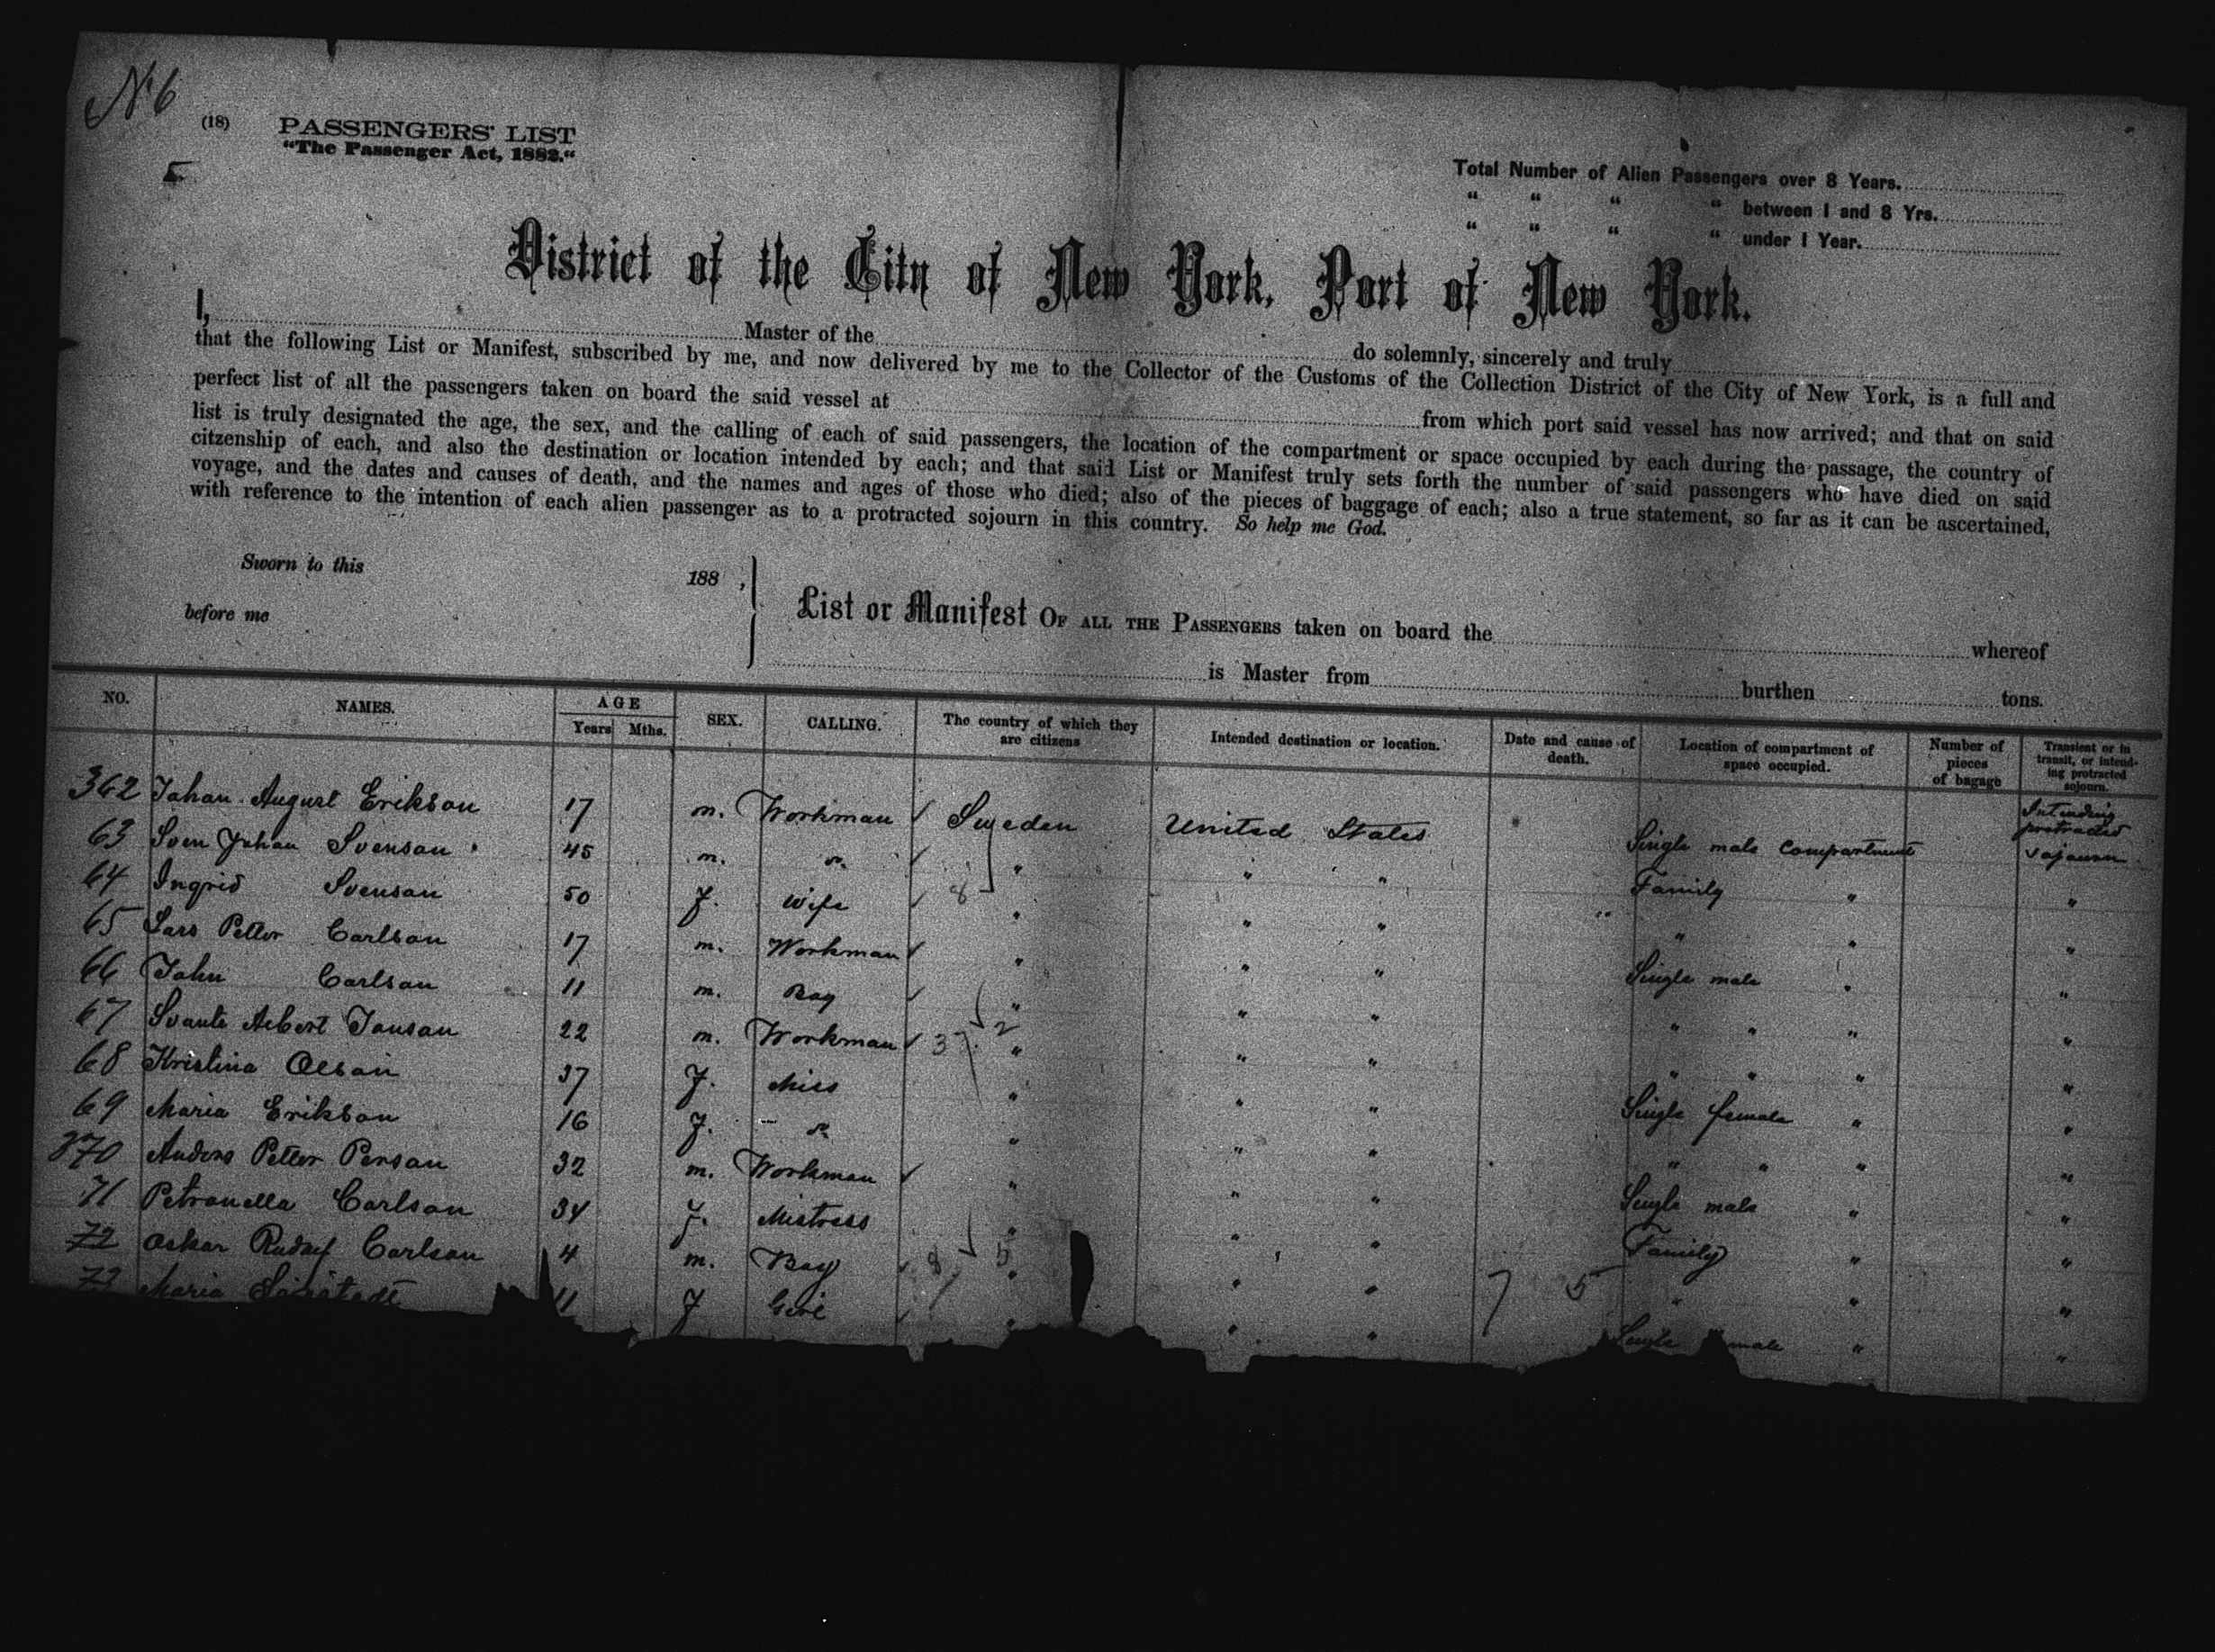 N 6
(18) PASSENGERS' LIST
"The Passenger Act, 1882."
Total Number of Alien Passengers over 8 Years.
" " " " between 1 and 8 Yrs.
" " " " under 1 Year.
District of the City of New York, Port of New York.
I, Master of the do solemnly, sincerely and truly
that the following List or Manifest, subscribed by me, and now delivered by me to the Collector of the Customs of the Collection District of the City of New York, is a full and
perfect list of all the passengers taken on board the said vessel at from which port said vessel has now arrived; and that on said
list is truly designated the age, the sex, and the calling of each of said passengers, the location of the compartment or space occupied by each during the passage, the country of
citzenship of each, and also the destination or location intended by each; and that said List or Manifest truly sets forth the number of said passengers who have died on said
voyage, and the dates and causes of death, and the names and ages of those who died; also of the pieces of baggage of each; also a true statement, so far as it can be ascertained,
with reference to the intention of each alien passenger as to a protracted sojourn in this country. So help me God.
Sworn to this 188 ,
before me
List or Manifest OF ALL THE PASSENGERS taken on board the whereof
is Master from burthen tons.
NO. NAMES. AGE Years Mths. SEX. CALLING. The country of which they are citizens Intended destination or location. Date and cause of death. Location of compartment of space occupied. Number of pieces of bagage Transient or in transit, or intending protracted sojourn.
362 Johan August Erikson 17 m. Workman Sweden United States Single male Compartment Intending protracted sojourn
63 Sven Johan Svenson 45 m. " " " " Family " "
64 Ingrid Svenson 50 f. Wife " " " " " "
65 Lars Petter Carlson 17 m. Workman " " " Single male " "
66 John Carlson 11 m. Boy " " " " " " "
67 Svante Albert Jonson 22 m. Workman " " " " " " "
68 Kristina Olson 37 f. Miss " " " Single female " "
69 Maria Erikson 16 f. " " " " " " " "
370 Anders Petter Person 32 m. Workman " " " Single male " "
71 Petronella Carlson 34 f. Mistress " " " Family " "
72 Oskar Rudolf Carlson 4 m. Boy " " " " " "
73 Maria 11 f Girl " " " Single male " "